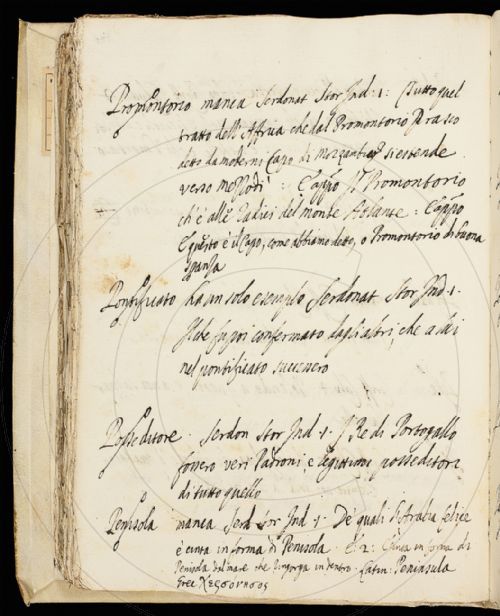 Promontorio manca Serdonat Stor Ind: 1: Tutto quel
tratto dell'Affrica che dal Promontorio Prasso
detto da moderni Capo di Mozzambiq si estende
verso Mezzodì : E appo Il Promontorio
ch'è alle radici del monte Atlante: E appo
E questo è il Capo, come abbiamo detto, o Promontorio di buona
speranza
Pontificato ha un solo esempio Serdonat Stor Ind 1.
Il che fu poi confermato dagli altri, che a lui
nel pontificato
Posseditore. Serdon Stor Ind. 1. I Re di Portogallo
fossero veri Padroni, e legittimi posseditori
di tutto quello
Penisola manca Serd Stor Ind 1. De quali l'Arabia felice
è cinta in forma di Penisola. E 2: Cinta in forma di
Penisola dal mare che in dentro. Latin: Peninsula
Grec